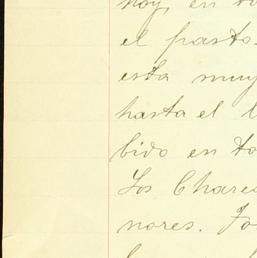 hoy, en to
el pasto.
esta muy
hasta el l
bido en to
Los Chare
nores. Fo